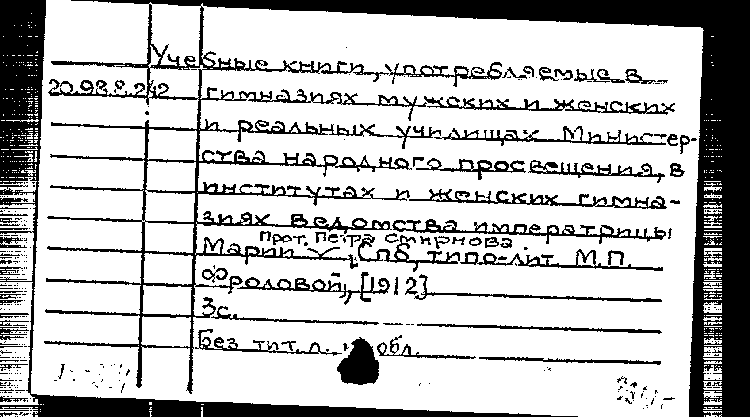 Учебные книги, употребляемые в
20.98.8.242 гимназиях мужских и женских
и реальных училищах Министер-
ства народного просвещения, в
институтах и женских гимна-
зиях Ведомства императрицы
прот. Петра Смирнова.
Марии Спб, типо-лит. М.П.
Фроловой, [1912]
3с.
Без тит. л. обл.